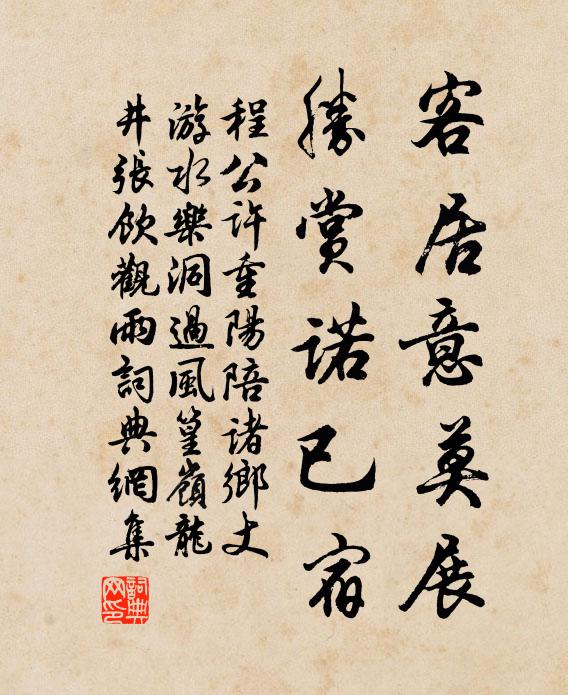 客居意莫展
勝賞諾已宿
程公許重陽陪諸鄉丈
游水樂洞過風篁嶺龍
井張飲觀雨詞典網集
詞典網印